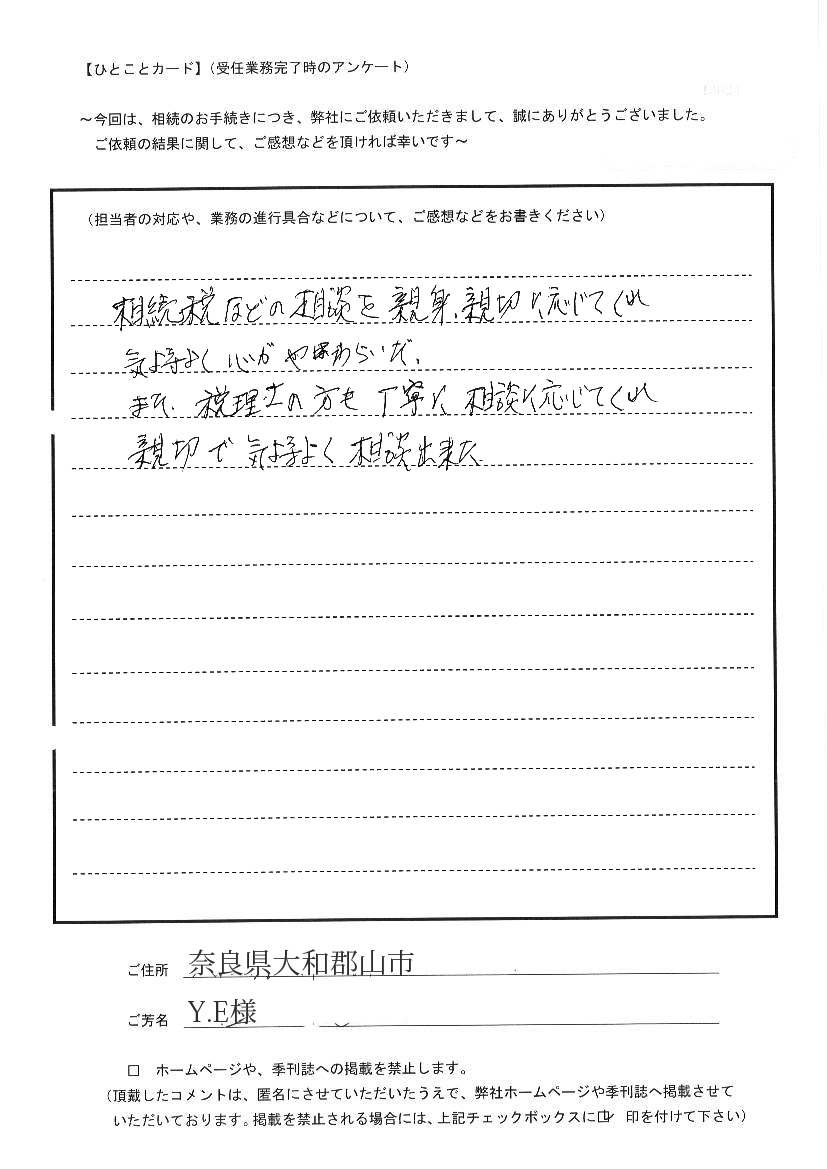 【ひとことカード】(受任業務完了時のアンケート)
～今回は、相続のお手続きにつき、弊社にご依頼いただきまして、誠にありがとうございました。
ご依頼の結果に関して、ご感想などを頂ければ幸いです～
(担当者の対応や、業務の進行具合などについて、ご感想などをお書きください)
相続税などの相談を親身、親切に応じてくれ
気持よく心がや和わらいだ。
また、税理士の方も丁寧に相談に応じてくれ
親切で気持よく相談出来た
ご住所 奈良県大和郡山市
ご芳名 Y.E様
□ ホームページや、季刊誌への掲載を禁止します。
(頂戴したコメントは、匿名にさせていただいたうえで、弊社ホームページや季刊誌へ掲載させて
いただいております。掲載を禁止される場合には、上記チェックボックスに☑ 印を付けて下さい)